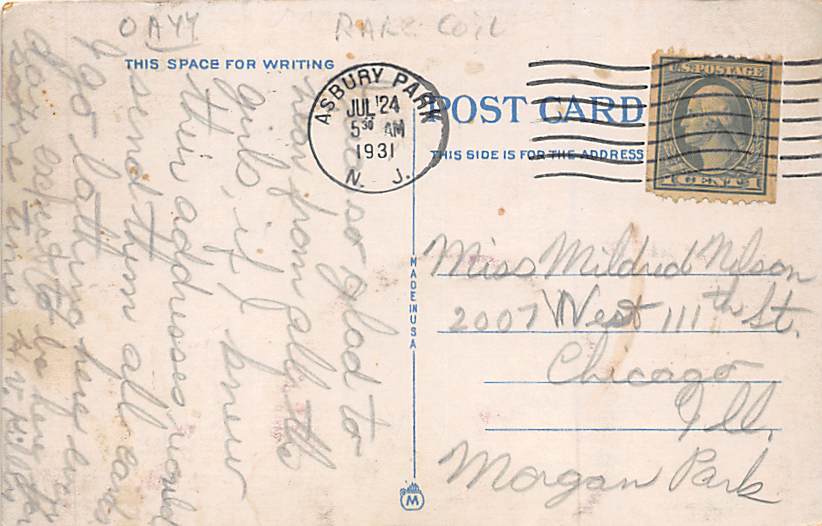 OAYY
RARE COIL
THIS SPACE FOR WRITING
ASBURY PARK
JUL 24
5 30 AM
1931
N. J.
POST CARD
THIS SIDE IS FOR THE ADDRESS
U.S. POSTAGE
CENTS
MADE IN USA
M
so glad to
hear from all the
girls, if I knew
their addresses would
send them all cards
I go bathing here every
day expect to be here for
some time
Miss Mildred Nelson
2007 West 111th St.
Chicago
Ill.
Morgan Park